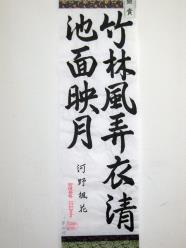 竹林風弄衣清
池面映月
河野楓花